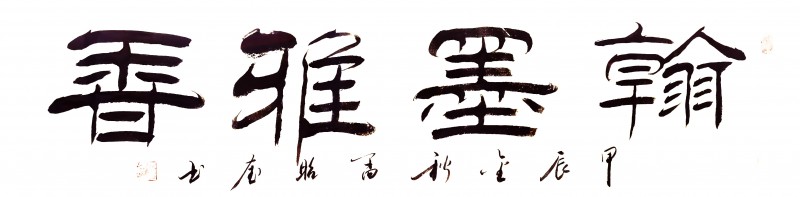 翰墨雅香
甲辰金秋昭书